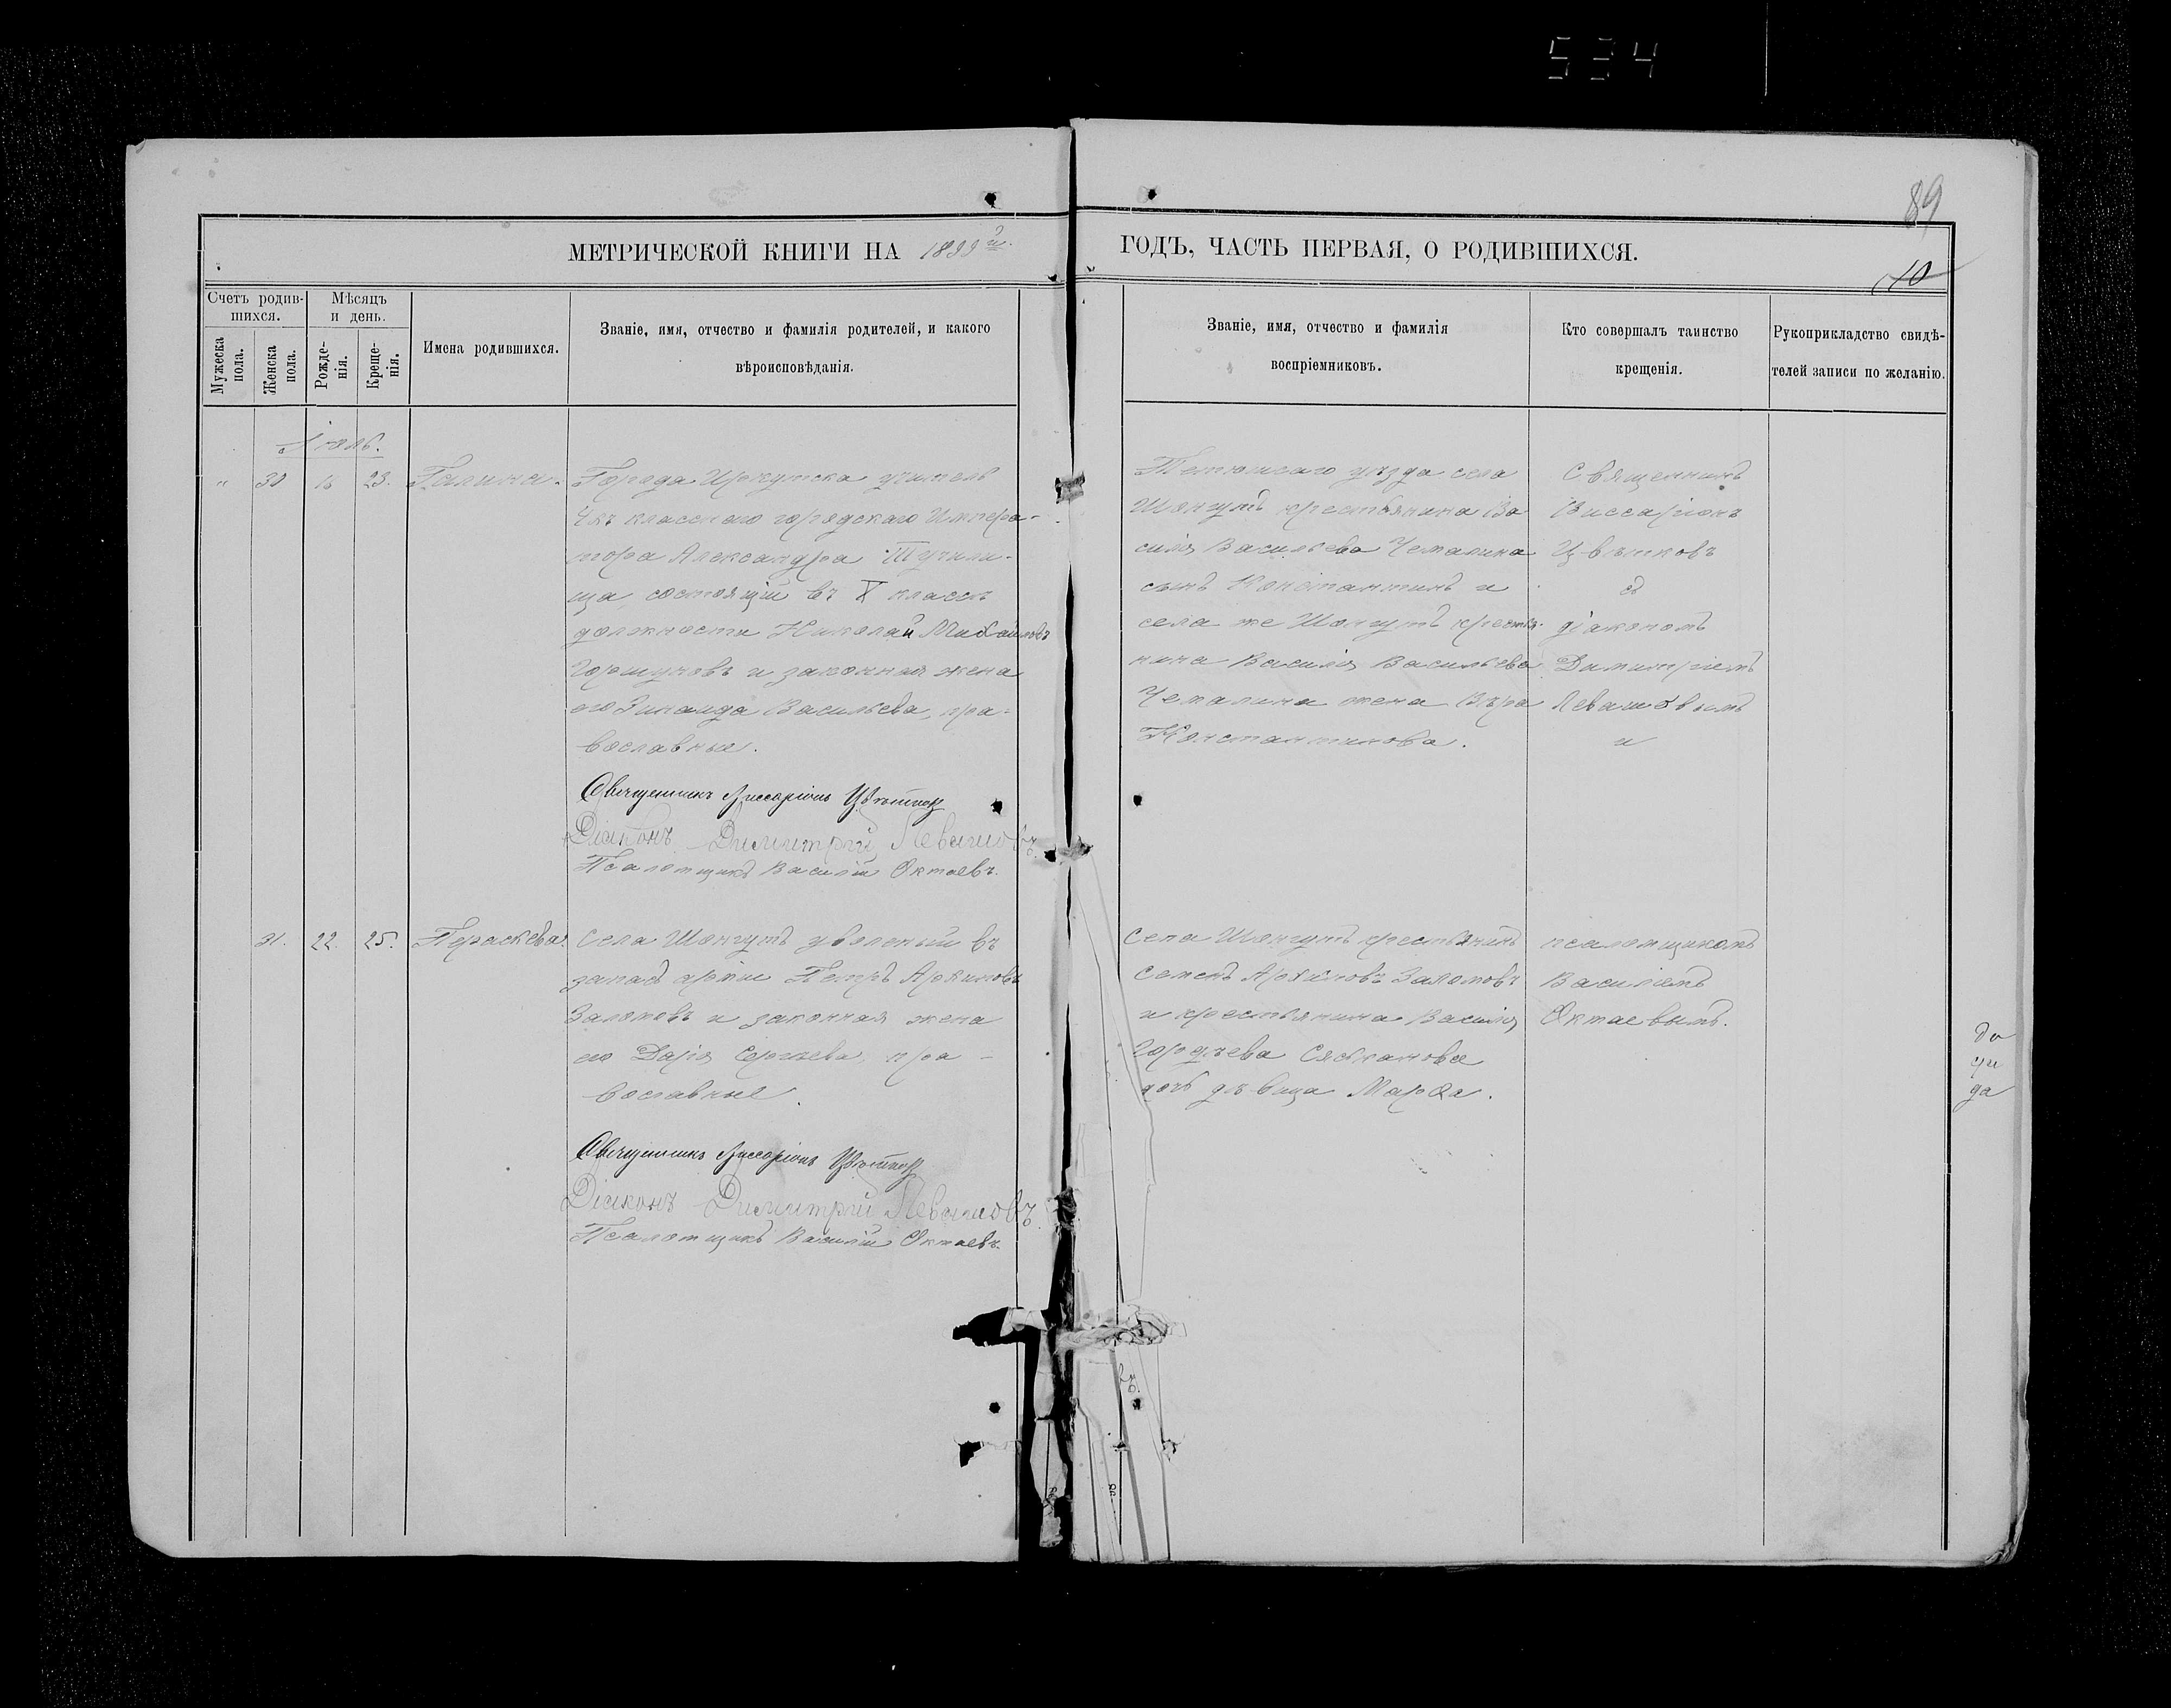 534
89
МЕТРИЧЕСКОЙ КНИГИ НА 1899 й.
ГОДЪ, ЧАСТЬ ПЕРВАЯ, О РОДИВШИХСЯ.
Счетъ родив-
шихся.
Мѣсяцъ
и день.
Мужеска
пола.
Женска
пола.
Рожде-
нія.
Креще-
нія.
Имена родившихся.
Званіе, имя, отчество и фамилія родителей, и какого
вѣроисповѣданія.
Званіе, имя, отчество и фамилія
воспріемниковъ.
Кто совершалъ таинство
крещенія.
Рукоприкладство свидѣ-
телей записи по желанію.
" 30 16 23. Галина.
Города Иркутска учитель
4хъ класснаго городскаго Импера-
тора Александра III училы-
ща, состоящій въ X классѣ
должности Николай Михайловъ
Горшуновъ и законная жена
его Зинаида Васильева, пра-
вославные.
Священникъ Виссаріонъ Цвѣтковъ
Діаконъ Димитрій Левашовъ.
Псаломщикъ Василій Октаевъ.
Тетюшскаго уѣзда села
Шонгутъ крестьянина Ва
силія Васильева Чемалина
сынъ Константинъ и
села же Шонгутъ крестья-
нина Василія Васильева
Чемалина жена Вѣра
Константинова.
Священникъ
Виссаріонъ
Цвѣтковъ
съ
діакономъ
Димитріемъ
Левашовымъ
и
31. 22. 25. Параскева.
Села Шонгутъ уволеный въ
запасъ арміи Петръ Архиповъ
Заломовъ и законная жена
его Дарія Сергѣева, пра-
вославные.
Священникъ Виссаріонъ Цвѣтковъ
Діаконъ Димитрій Левашовъ.
Псаломщикъ Василій Октаевъ.
Села Шонгутъ крестьянинъ
Семенъ Архиповъ Заломовъ
и крестьянина Василія
Гордѣева
дочь дѣвица Марѳа.
псаломщикомъ
Василіемъ
Октаевымъ.